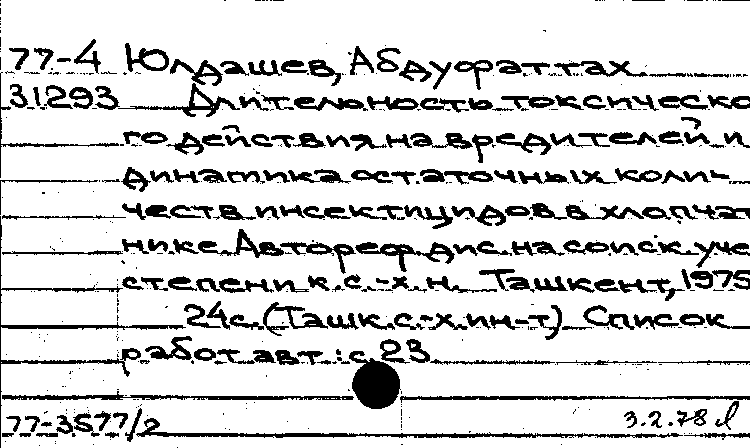 77-4 Юлдашев, Абдуфаттах
31293 Длительность токсическо
го действия на вредителей и
динамика остаточных коли-
честв инсектицидов в хлопчат
нике. Автореф дис. на соиск. уче
степени к.с.-х.н. Ташкент, 1975
24с. (Ташк.с.-х.ин-т) Список
работ авт.: с. 23
77-3577/2 3.2.78